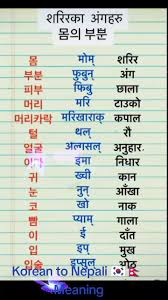 शरिरका अंगहरु
몸의 부뿐
몸 मोम् शरिर
부분 फुबुन् अंग
피부 फिबु छाला
머리 मरि टाउको
머리카락 मरिखाराक् कपाल
털 थल् रौ
얼굴 अल्गसल् अनुहार
이마 इमा निधार
귀 ख्वी कान
눈 नुन् आँखा
코 खो नाक
뺨 प्याम् गाला
이 ई दाँत
입 इप् मुख
입술 इप्सुल् ओठ
Korean to Nepali 🇰🇷🇳🇵
Meaning